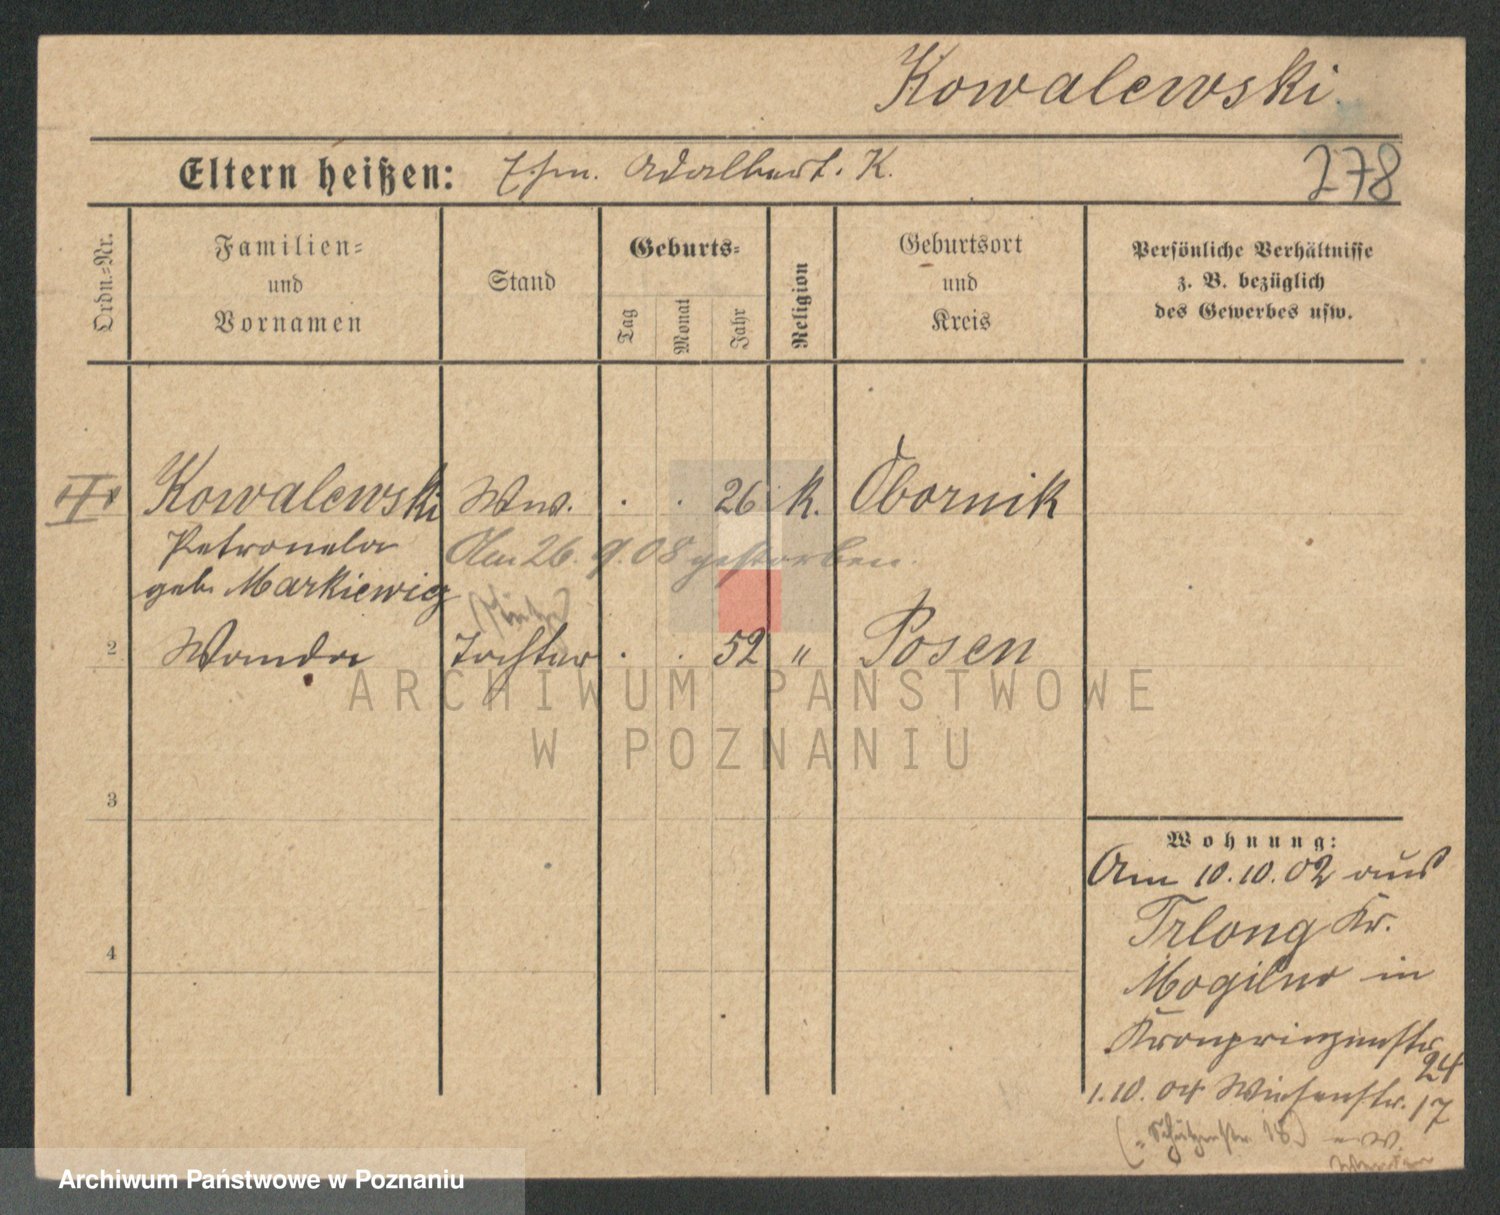 Kowalewski
278
Eltern heißen: Ehm. Adalbert K.
Ordn.=Nr.
Familien=
und
Vornamen
Stand
Geburts=
Tag
Monat
Jahr
Religion
Geburtsort
und
Kreis
Persönliche Verhältnisse
z. B. bezüglich
des Gewerbes usw.
Kowalewski Ww. . . 26 k. Obornik
Petronela
Am 26. 9. 08 gestorben.
geb. Markiewicz
2 Wanda Tochter . . 52 " Posen
ARCHIWUM PAŃSTWOWE
W POZNANIU
3
4
Wohnung:
Am 10.10.02 aus
Trlong Kr.
Mogilno in
Kronprinzenstr.
24
1.10.04 Wiesenstr. 17
Schützenstr. 18
Archiwum Państwowe w Poznaniu